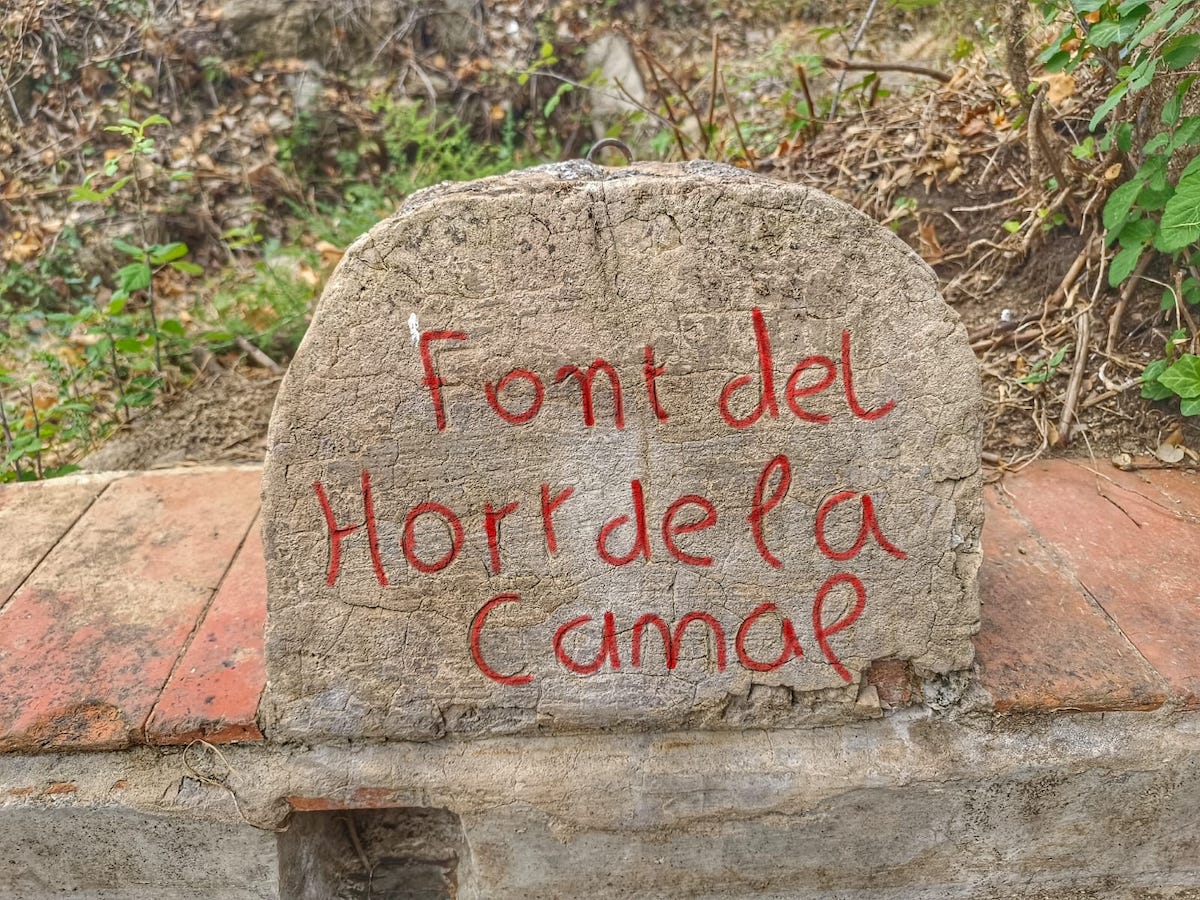 Font del
Hort de la
Camal